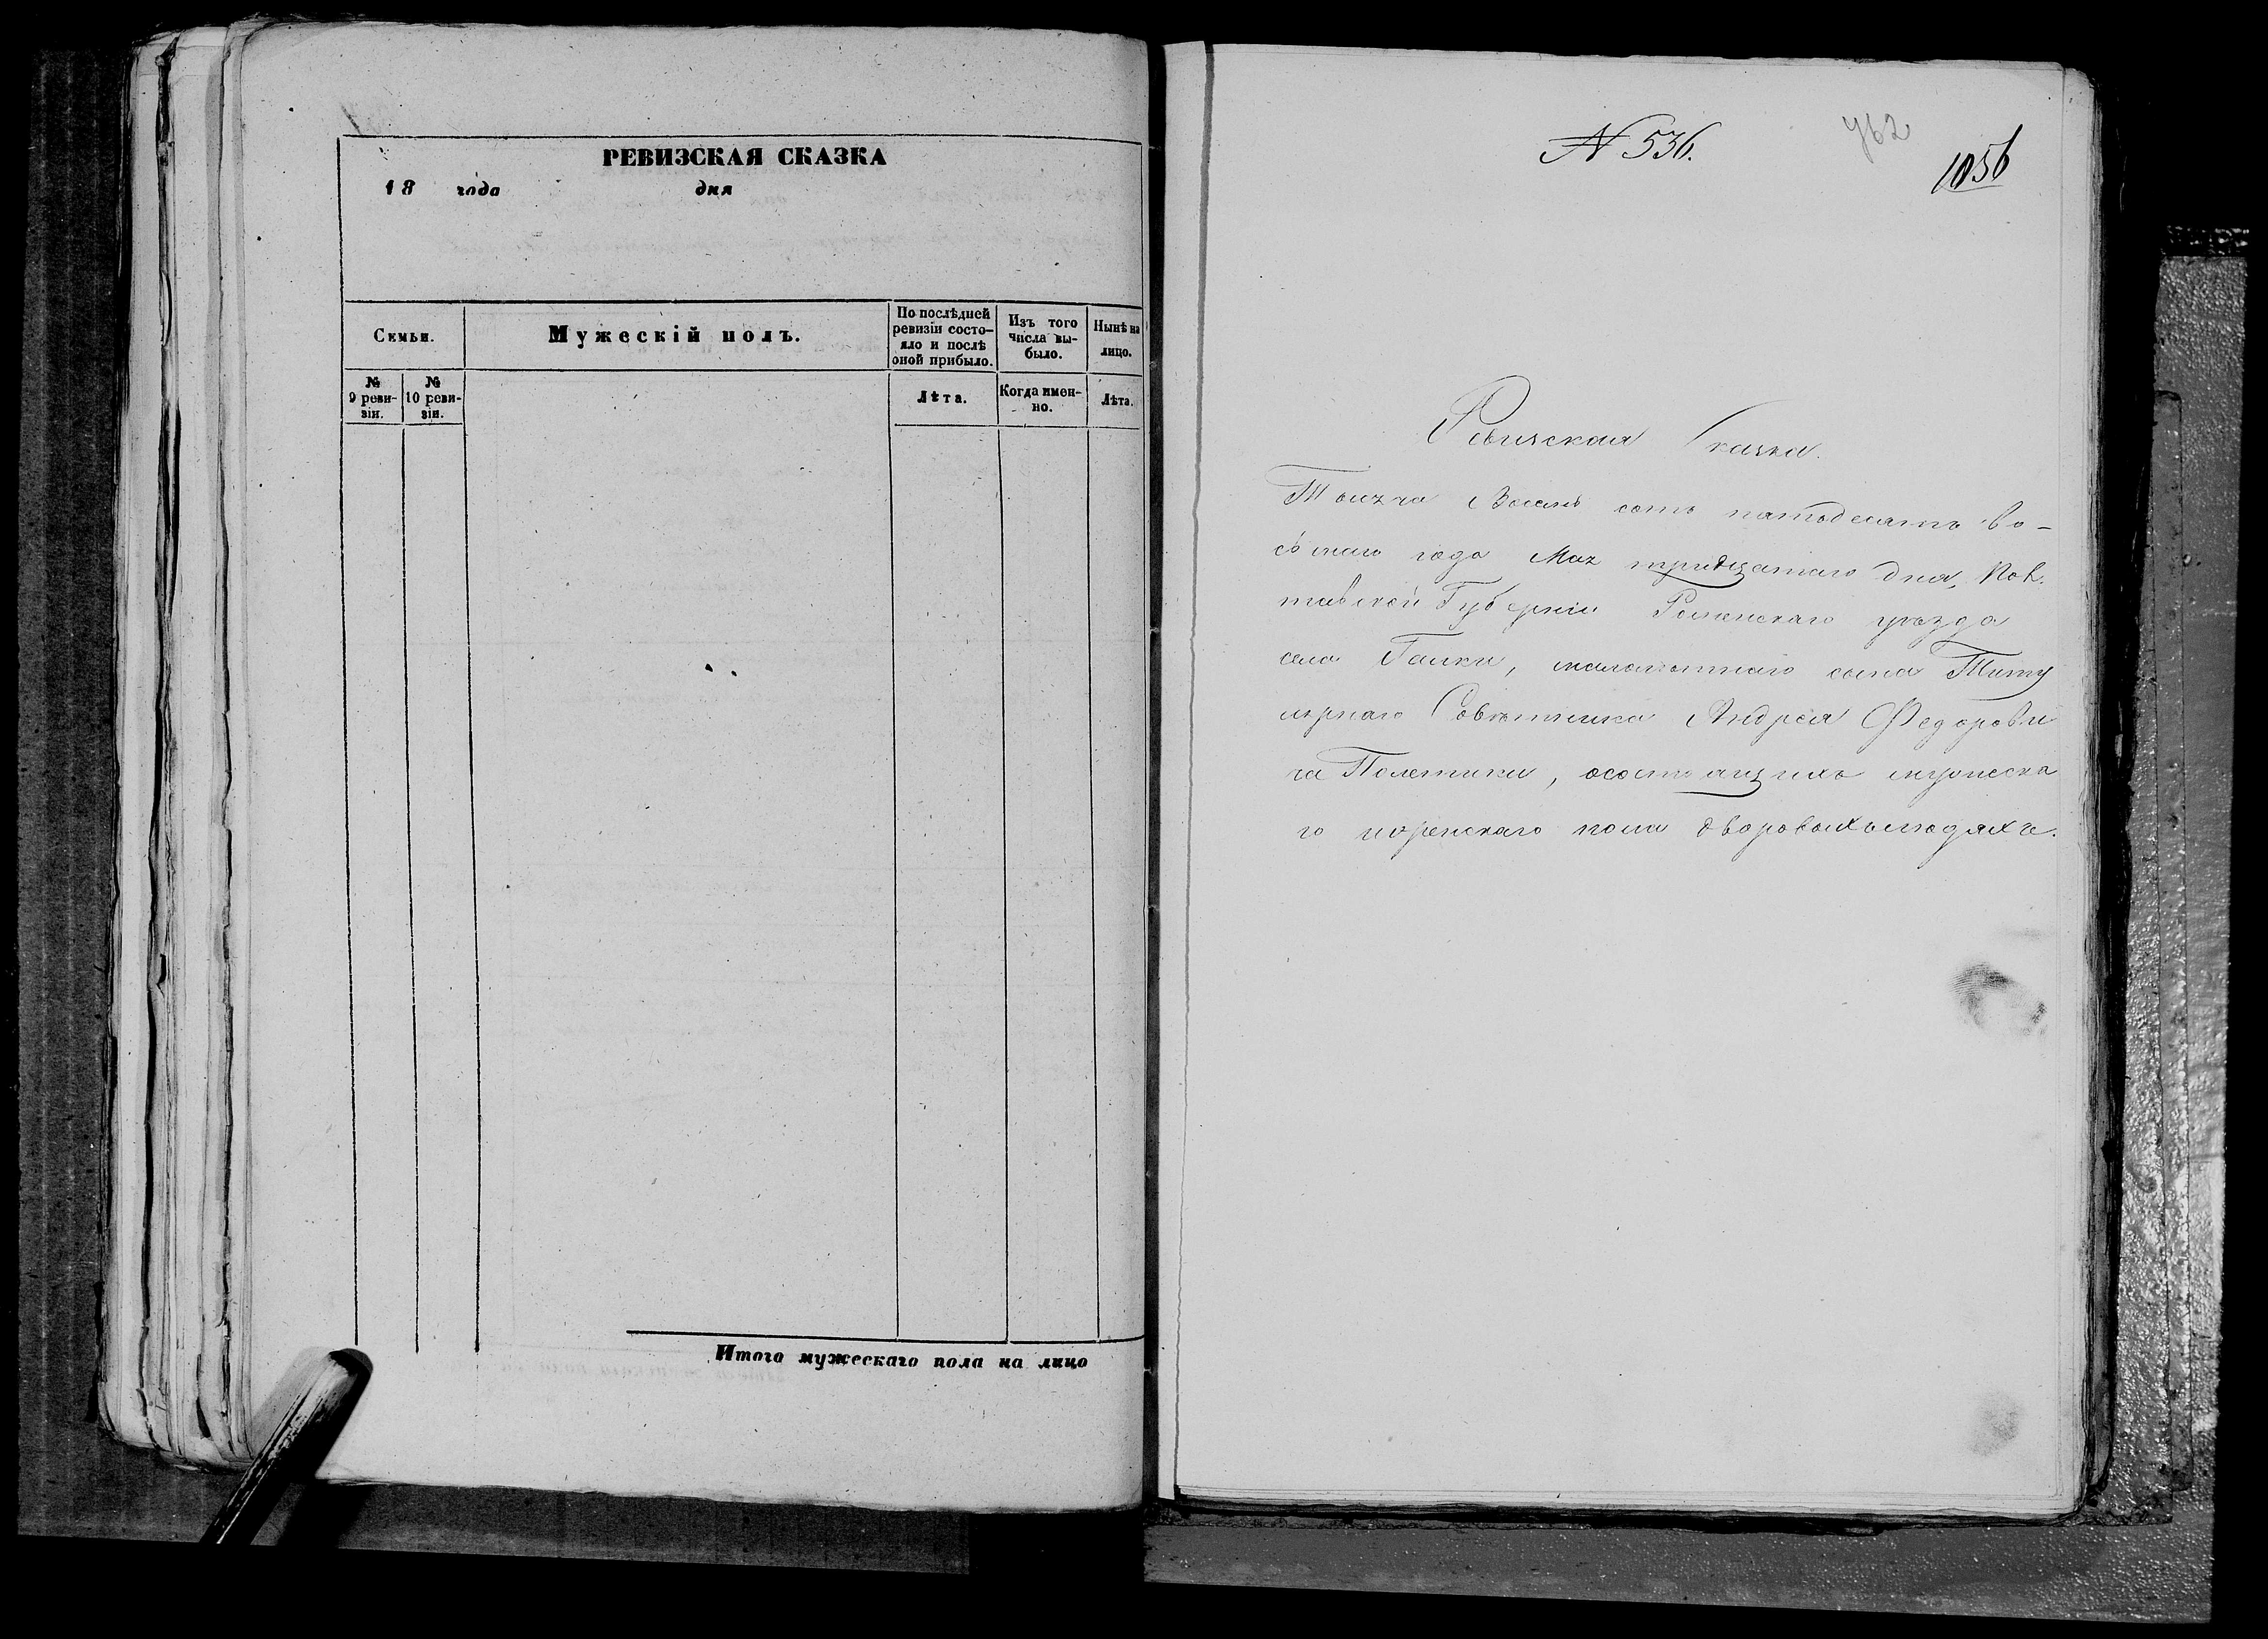 РЕВИЗСКАЯ СКАЗКА
18 года дня
Семьи.
Мужескій полъ.
По послѣдней ревизіи состо-
яло и послѣ оной прибыло.
Изъ того числа вы-
было.
Нынѣ на лицо.
№ 9 реви-
зіи.
№ 10 реви-
зіи.
Лѣта.
Когда имен-
но.
Лѣта.
Итого мужескаго пола на лицо
N 536.
762
1056
Ревизская Сказка.
Тысяча Восемь сотъ пятьдесятъ во-
сьмаго года Мая тридцатаго дня, Пол.
тавской Губерніи Роменскаго уѣзда
села Галки, малолѣтнаго сына Титу
лярнаго Совѣтника Андрея Федорови
ча Полетики, осостоящихъ мужеска
го иженскаго пола дворовыхълюдяхъ.